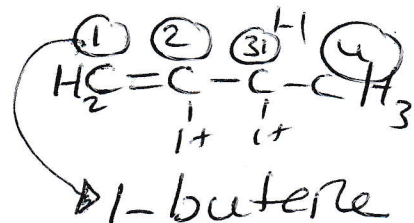 1 2 3 H 4
H₂C=C-C-CH₃
H H
1-butene